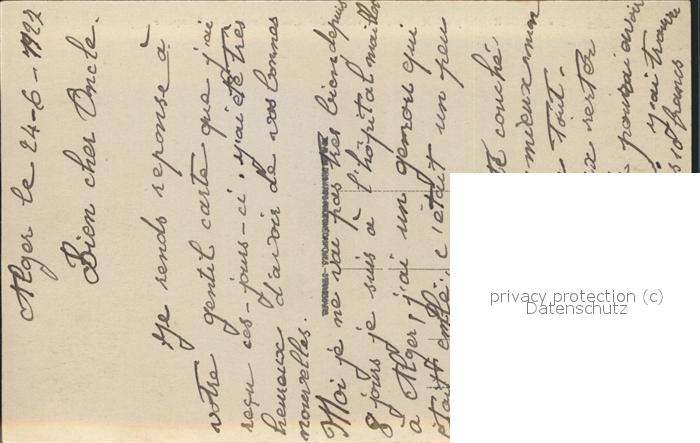 Alger le 24-6-1922
Bien cher Oncle.
Je rends reponse à
votre gentil carte que j'ai
reçu ces-jours-ci. j'ai été très
heureux d'avoir de vos bonnes
nouvelles.
Moi je ne vai pas très bien depuis
8 jours je suis à l'hôpital maillot
à Alger, j'ai un genou qui
était enflé, c'était un peu
couché.
mieux mon
Tout.
rester
pouvoir avoir
j'ai trouvé
10 francs
privacy protection (c)
Datenschutz